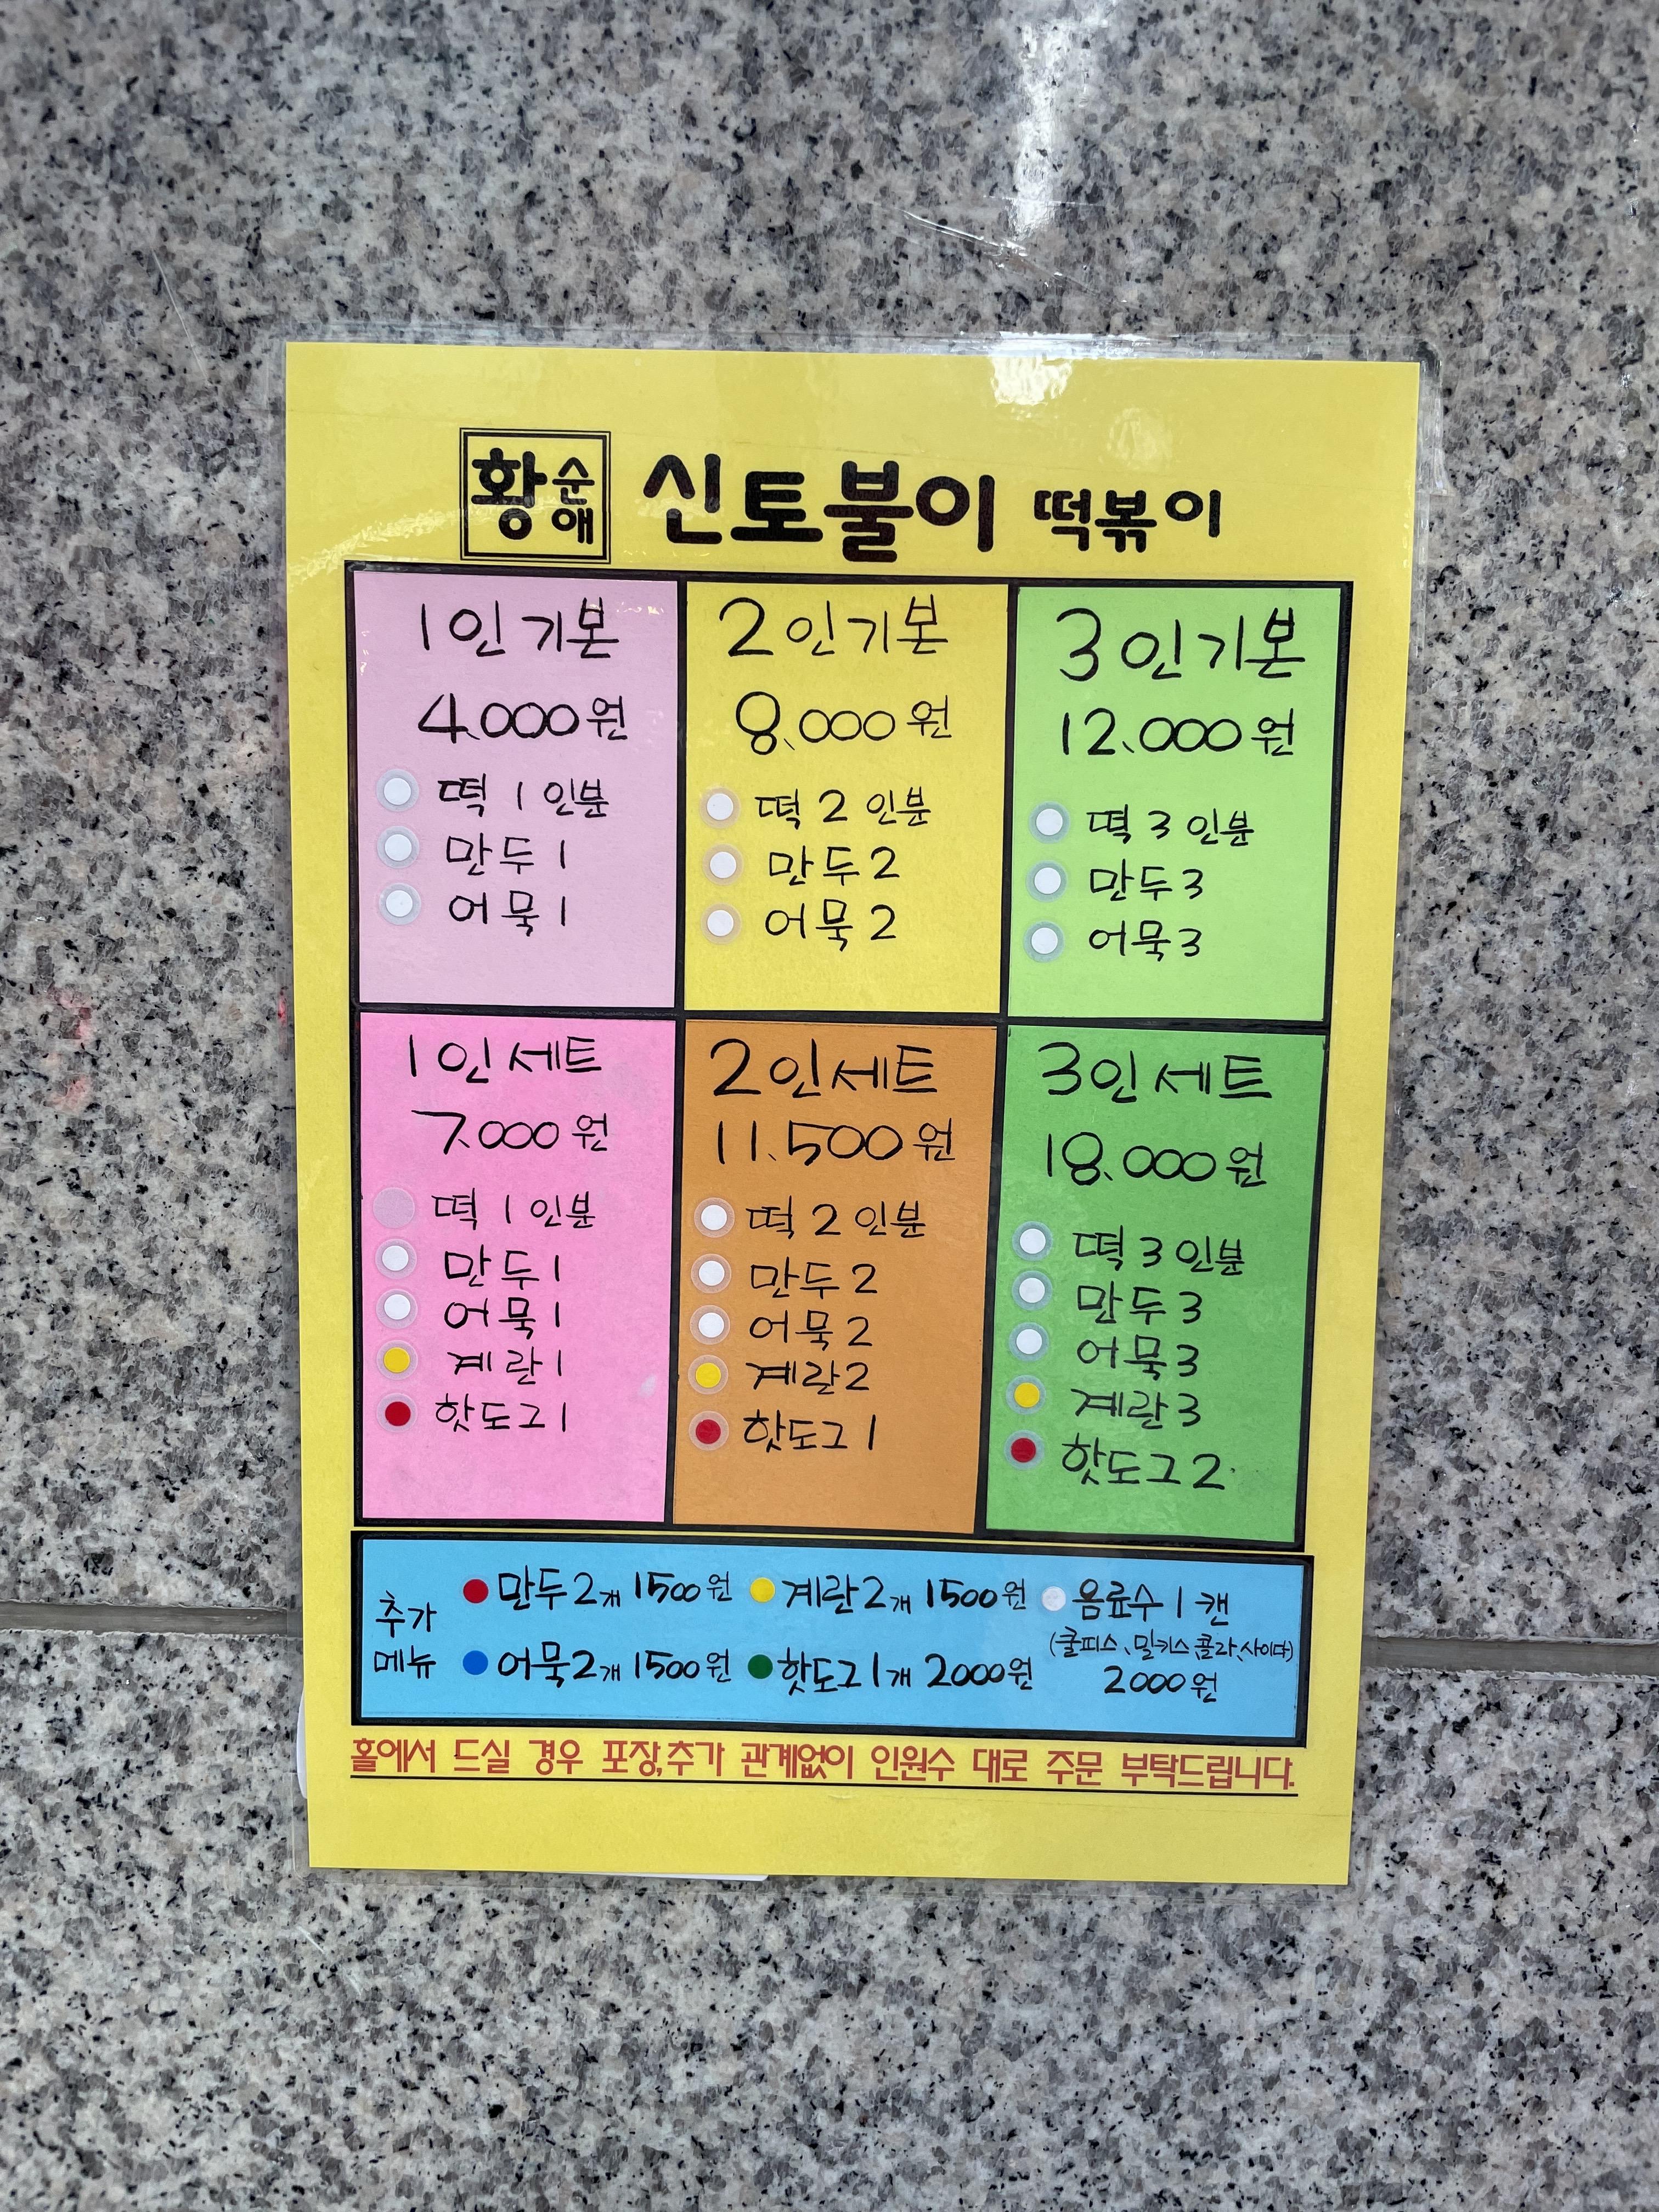 황순애 신토불이 떡볶이
1인 기본
4,000원
떡 1 인분
만두 1
어묵 1
2인 기본
8,000원
떡 2 인분
만두 2
어묵 2
3인 기본
12,000원
떡 3 인분
만두 3
어묵 3
1인 세트
7,000원
떡 1 인분
만두 1
어묵 1
계란 1
핫도그 1
2인 세트
11,500원
떡 2 인분
만두 2
어묵 2
계란 2
핫도그 1
3인 세트
18,000원
떡 3 인분
만두 3
어묵 3
계란 3
핫도그 2
추가
메뉴
만두 2개 1500원
계란 2개 1500원
음료수 1 캔
(쿨피스, 밀키스, 콜라, 사이다)
2000원
어묵 2개 1500원
핫도그 1개 2000원
홀에서 드실 경우 포장,추가 관계없이 인원수 대로 주문 부탁드립니다.